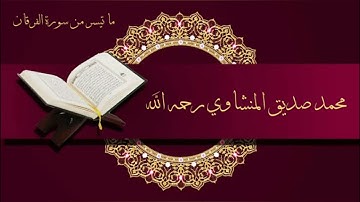 ما تيسر من سورة الفرقان
محمد صديق المنشاوي رحمه الله